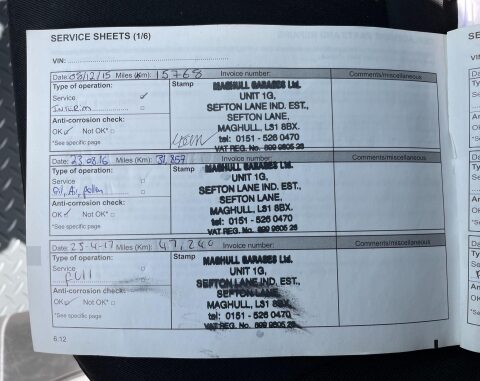 SERVICE SHEETS (1/6)
VIN:
Date: 08/12/15 Miles (Km): 15768 Invoice number: Comments/miscellaneous
Type of operation: Stamp MAGHULL GARAGES Ltd.
Service ✓ UNIT 1G,
Interim SEFTON LANE IND. EST.,
Anti-corrosion check: SEFTON LANE,
OK ✓ Not OK* MAGHULL, L31 8BX.
*See specific page tel: 0151 - 526 0470
VAT REG. No. 899 9805 28
Date: 23.08.16 Miles (Km): 31,859 Invoice number: Comments/miscellaneous
Type of operation: Stamp MAGHULL GARAGES Ltd.
Service UNIT 1G,
Oil, Air, pollen SEFTON LANE IND. EST.,
Anti-corrosion check: SEFTON LANE,
OK ✓ Not OK* MAGHULL, L31 8BX.
*See specific page tel: 0151 - 526 0470
VAT REG. No. 899 9805 28
Date: 25-4-17 Miles (Km): 47,240 Invoice number: Comments/miscellaneous
Type of operation: Stamp MAGHULL GARAGES Ltd.
Service UNIT 1G,
Full SEFTON LANE IND. EST.,
Anti-corrosion check: SEFTON LANE
OK ✓ Not OK* MAGHULL, L31 8BX.
*See specific page tel: 0151 - 526 0470
VAT REG. No. 899 9805 28
6.12